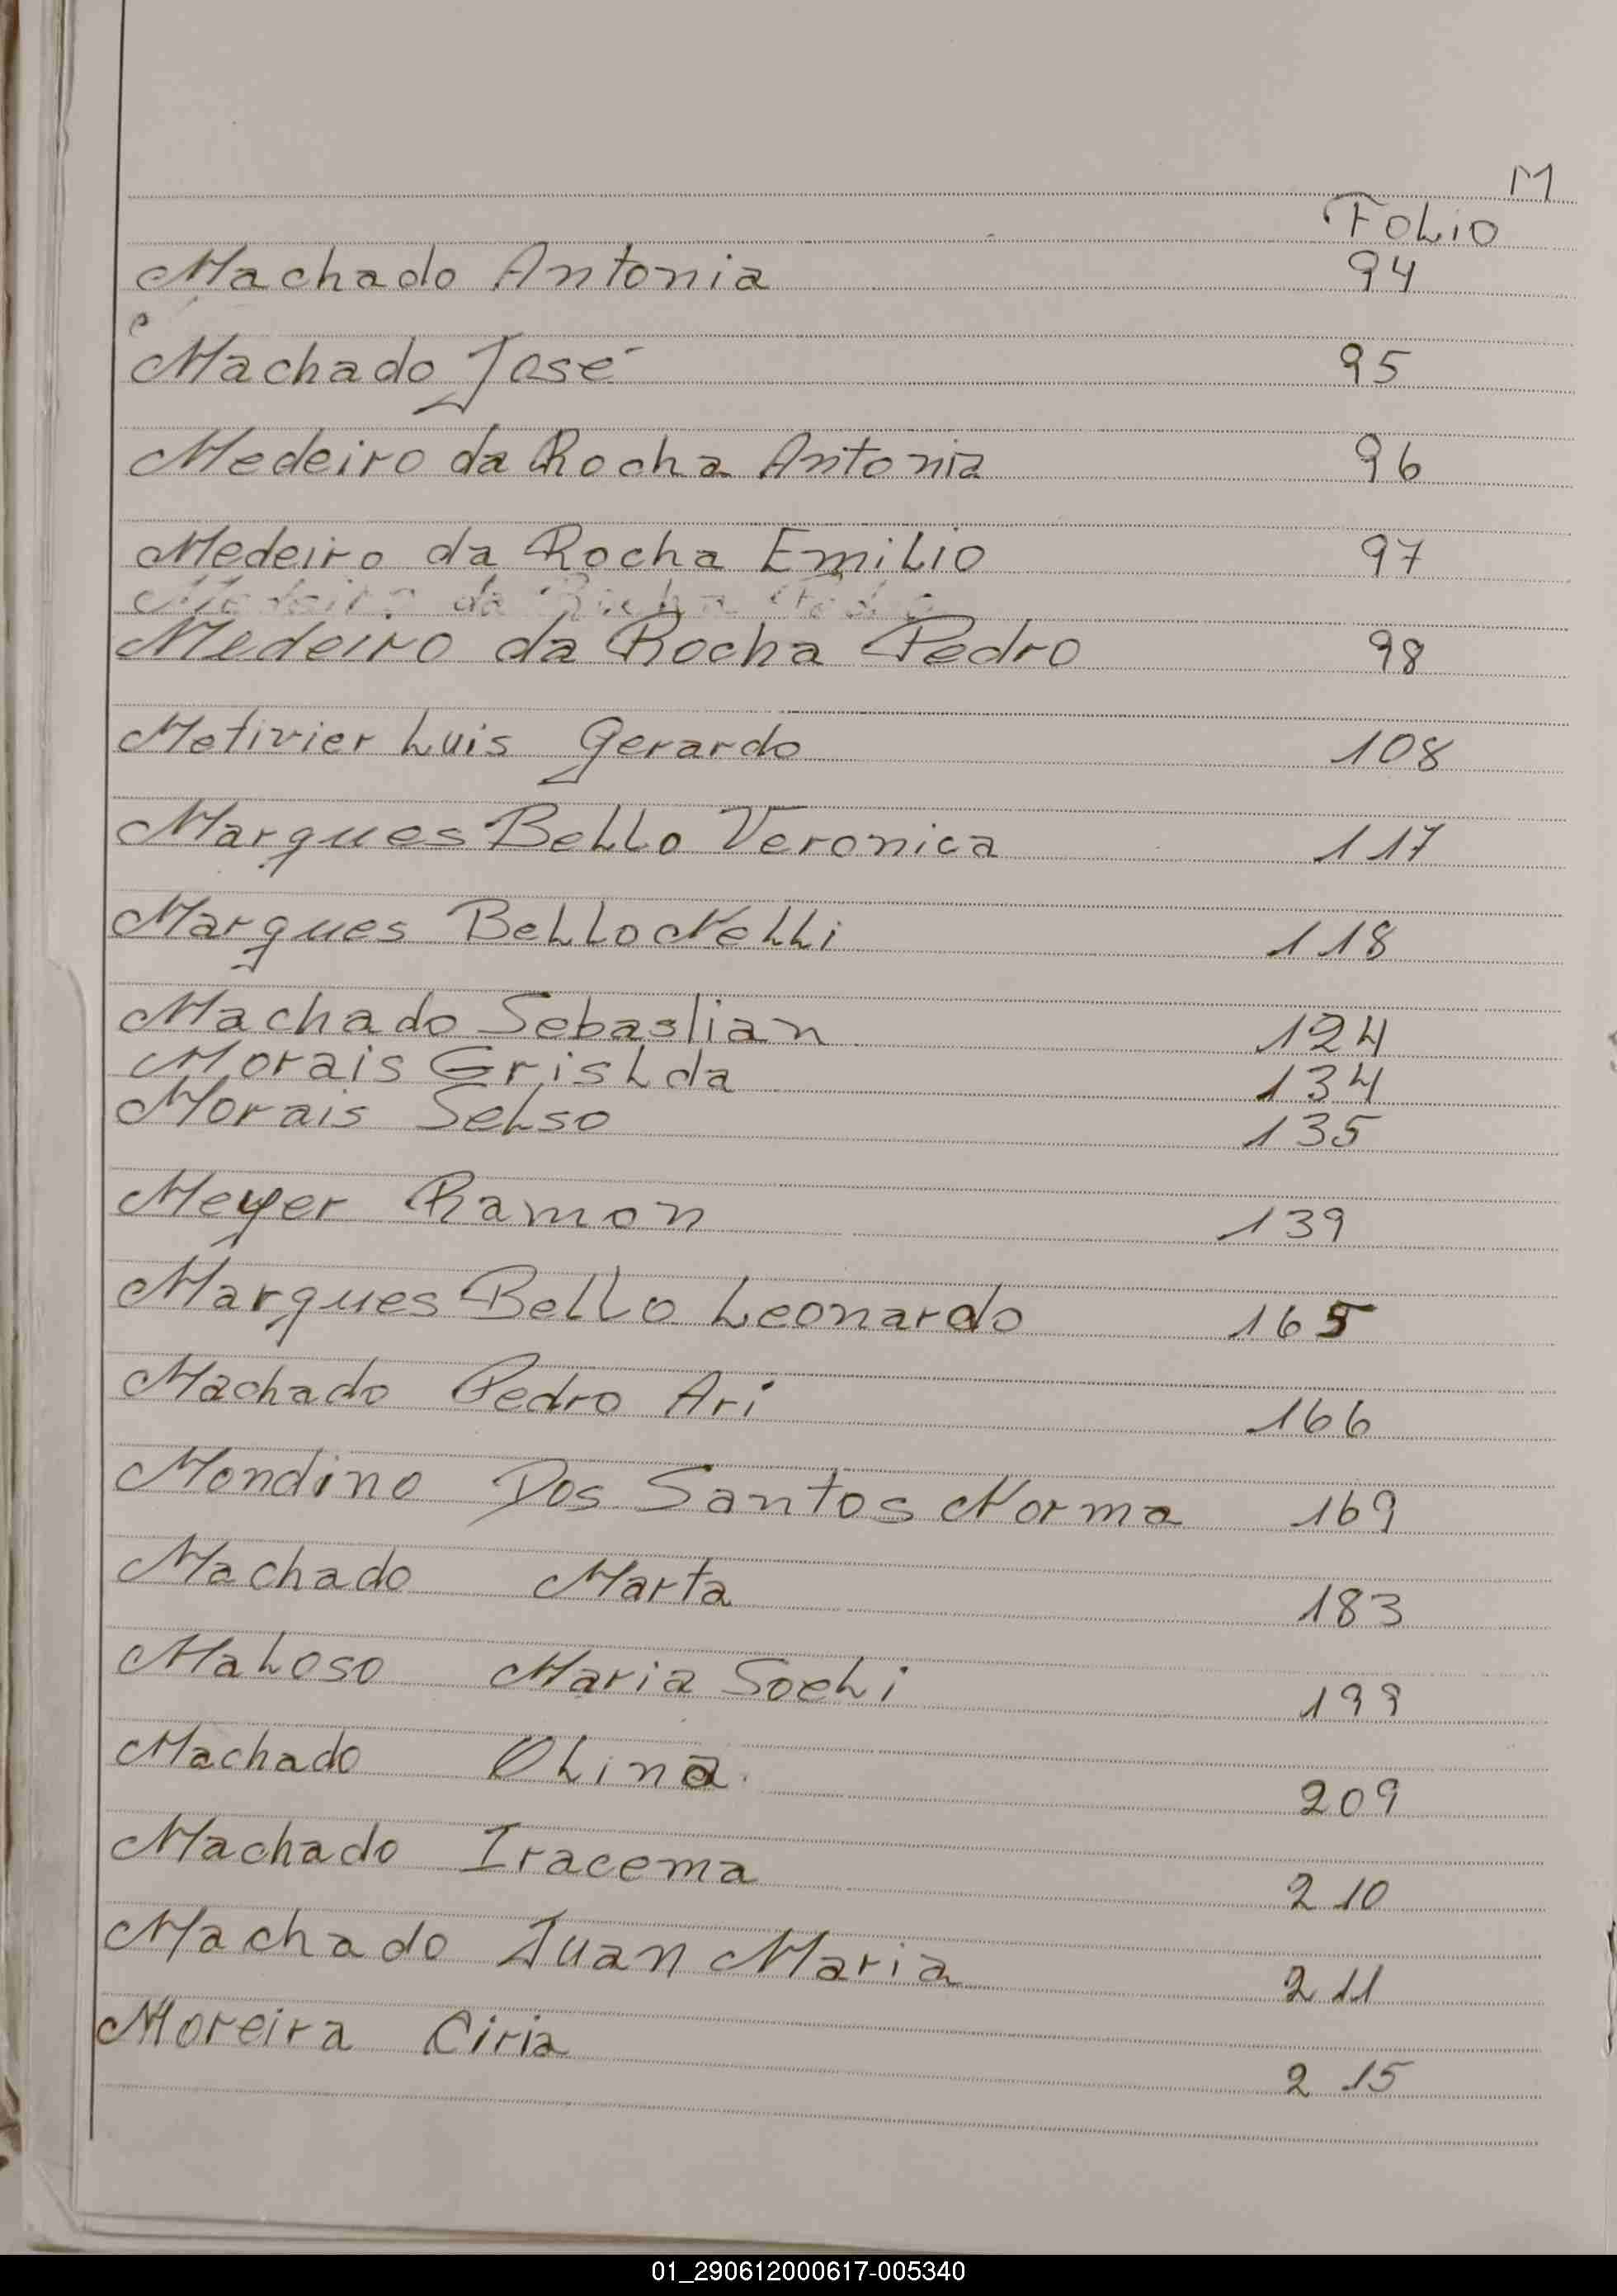 M
Folio
Machado Antonia 94
Machado José 95
Medeiro da Rocha Antonia 96
Medeiro da Rocha Emilio 97
Medeiro da Rocha Pedro
Medeiro da Rocha Pedro 98
Metivier Luis Gerardo 108
Marques Bello Veronica 117
Marques Bello Nelli 118
Machado Sebastian 124
Morais Grislda 134
Morais Selso 135
Meyer Ramon 139
Marques Bello Leonardo 165
Machado Pedro Ari 166
Mondino Dos Santos Norma 169
Machado Marta 183
Maloso Maria Soeli 199
Machado Olina 209
Machado Iracema 210
Machado Juan Maria 211
Moreira Ciria 215
01_290612000617-005340